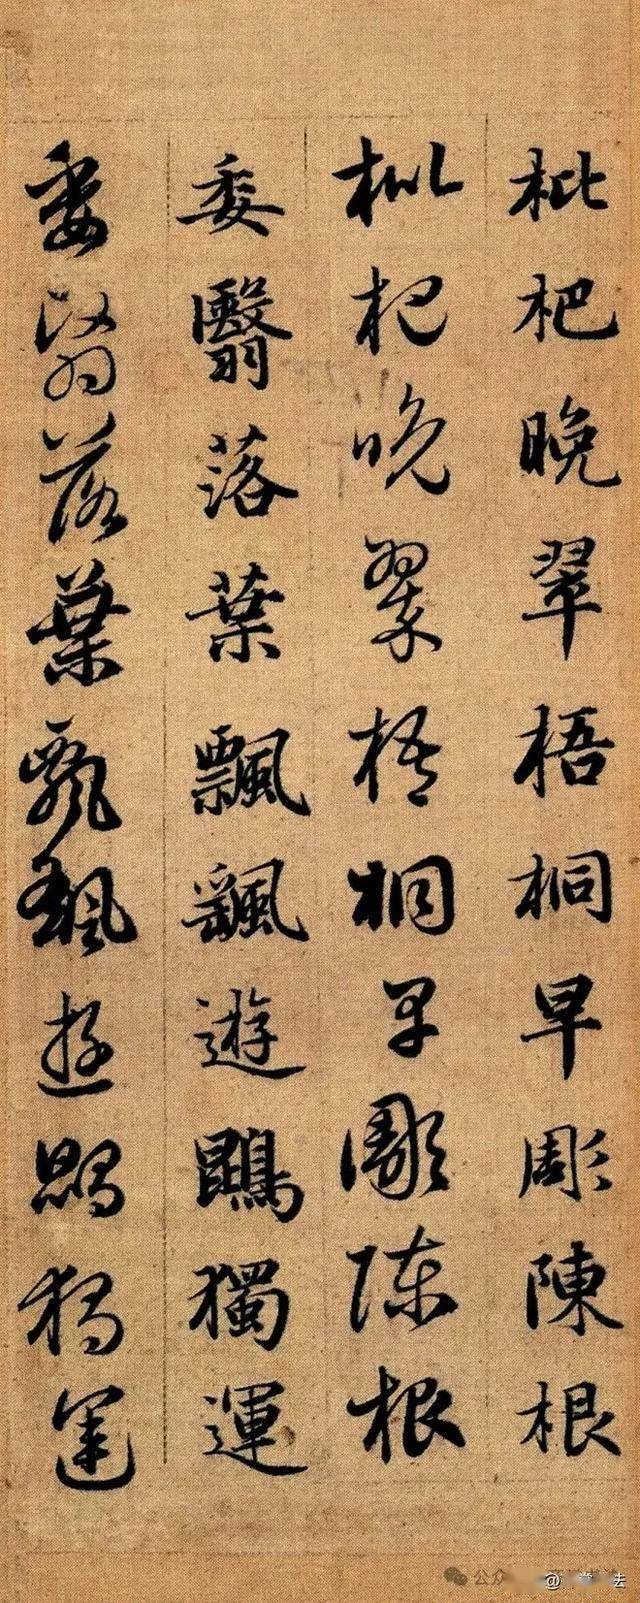 枇杷晚翠梧桐早彫陳根
枇杷晚翠梧桐早彫陳根
委翳落葉飄颻遊鵾獨運
委翳落葉飄颻遊鵾獨運
公众
@
法